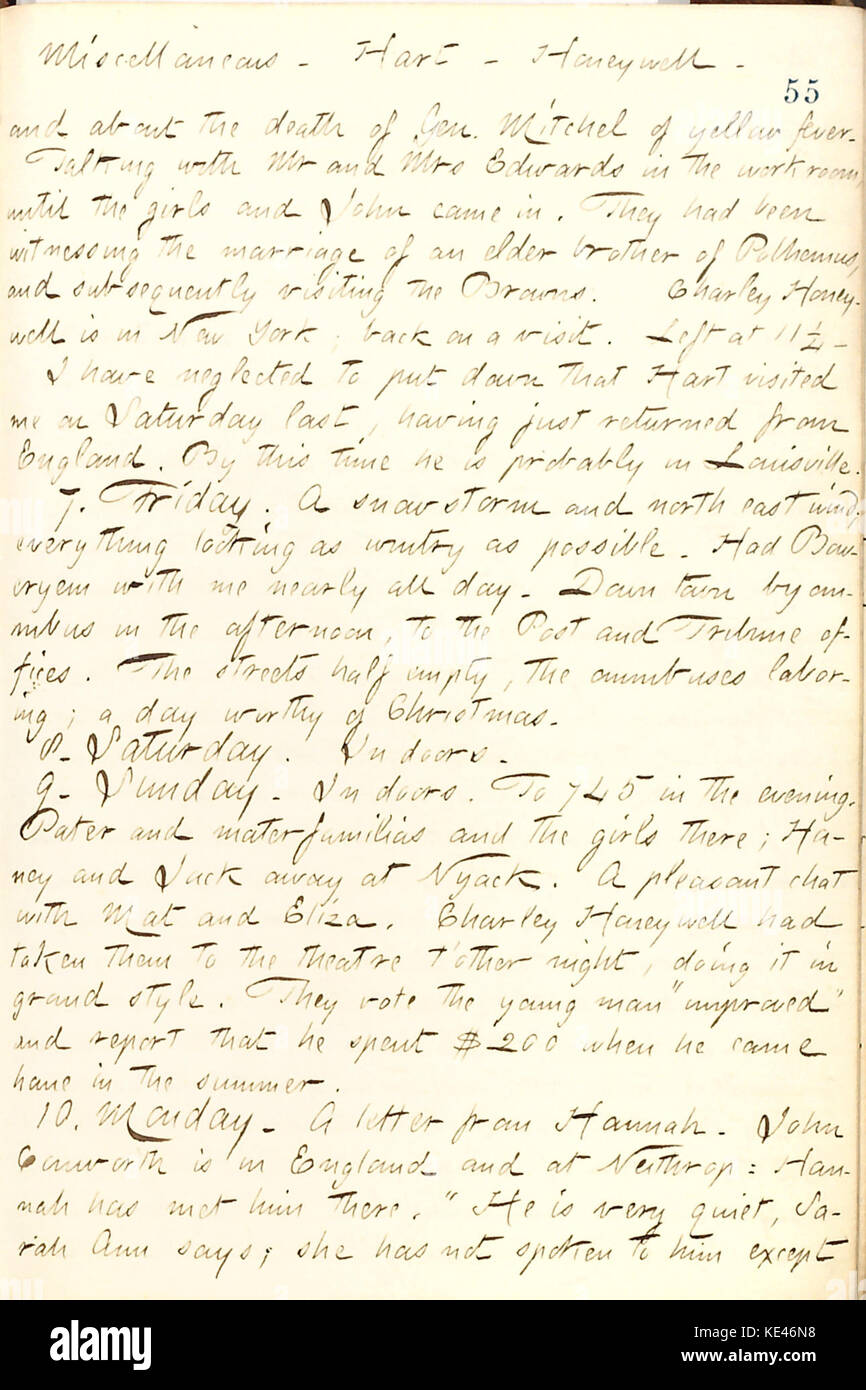 Miscellaneous - Hart - Honeywell -
55
and about the death of Gen. Mitchel of yellow fever.
Talking with Mr and Mrs Edwards in the workroom
until the girls and John came in. They had been
witnessing the marriage of an elder brother of Polhemus,
and subsequently visiting the Browns. Charley Honey-
well is in New York, back on a visit. Left at 11 1/4 -
I have neglected to put down that Hart visited
me on Saturday last, having just returned from
England. By this time he is probably in Louisville.
7. Friday. A snow storm and north east wind,
everything looking as wintry as possible. Had Bow-
eryem with me nearly all day. Down town by om-
nibus in the afternoon, to the Post and Tribune of-
fices. The streets half empty, the omnibuses labor-
ing; a day worthy of Christmas.
8. Saturday. In doors.
9. Sunday. In doors. To 745 in the evening.
Pater and materfamilias and the girls there; Ha-
ney and Jack away at Nyack. A pleasant chat
with Mat and Eliza. Charley Honeywell had
taken them to the theatre t'other night, doing it in
grand style. They vote the young man "improved"
and report that he spent $200 when he came
home in the summer.
10. Monday. A letter from Hannah. John
Conworth is in England and at Neithrop: Han-
nah has met him there. "He is very quiet, Sa-
rah Ann says; she has not spoken to him except
alamy
Image ID: KE46N8
www.alamy.com